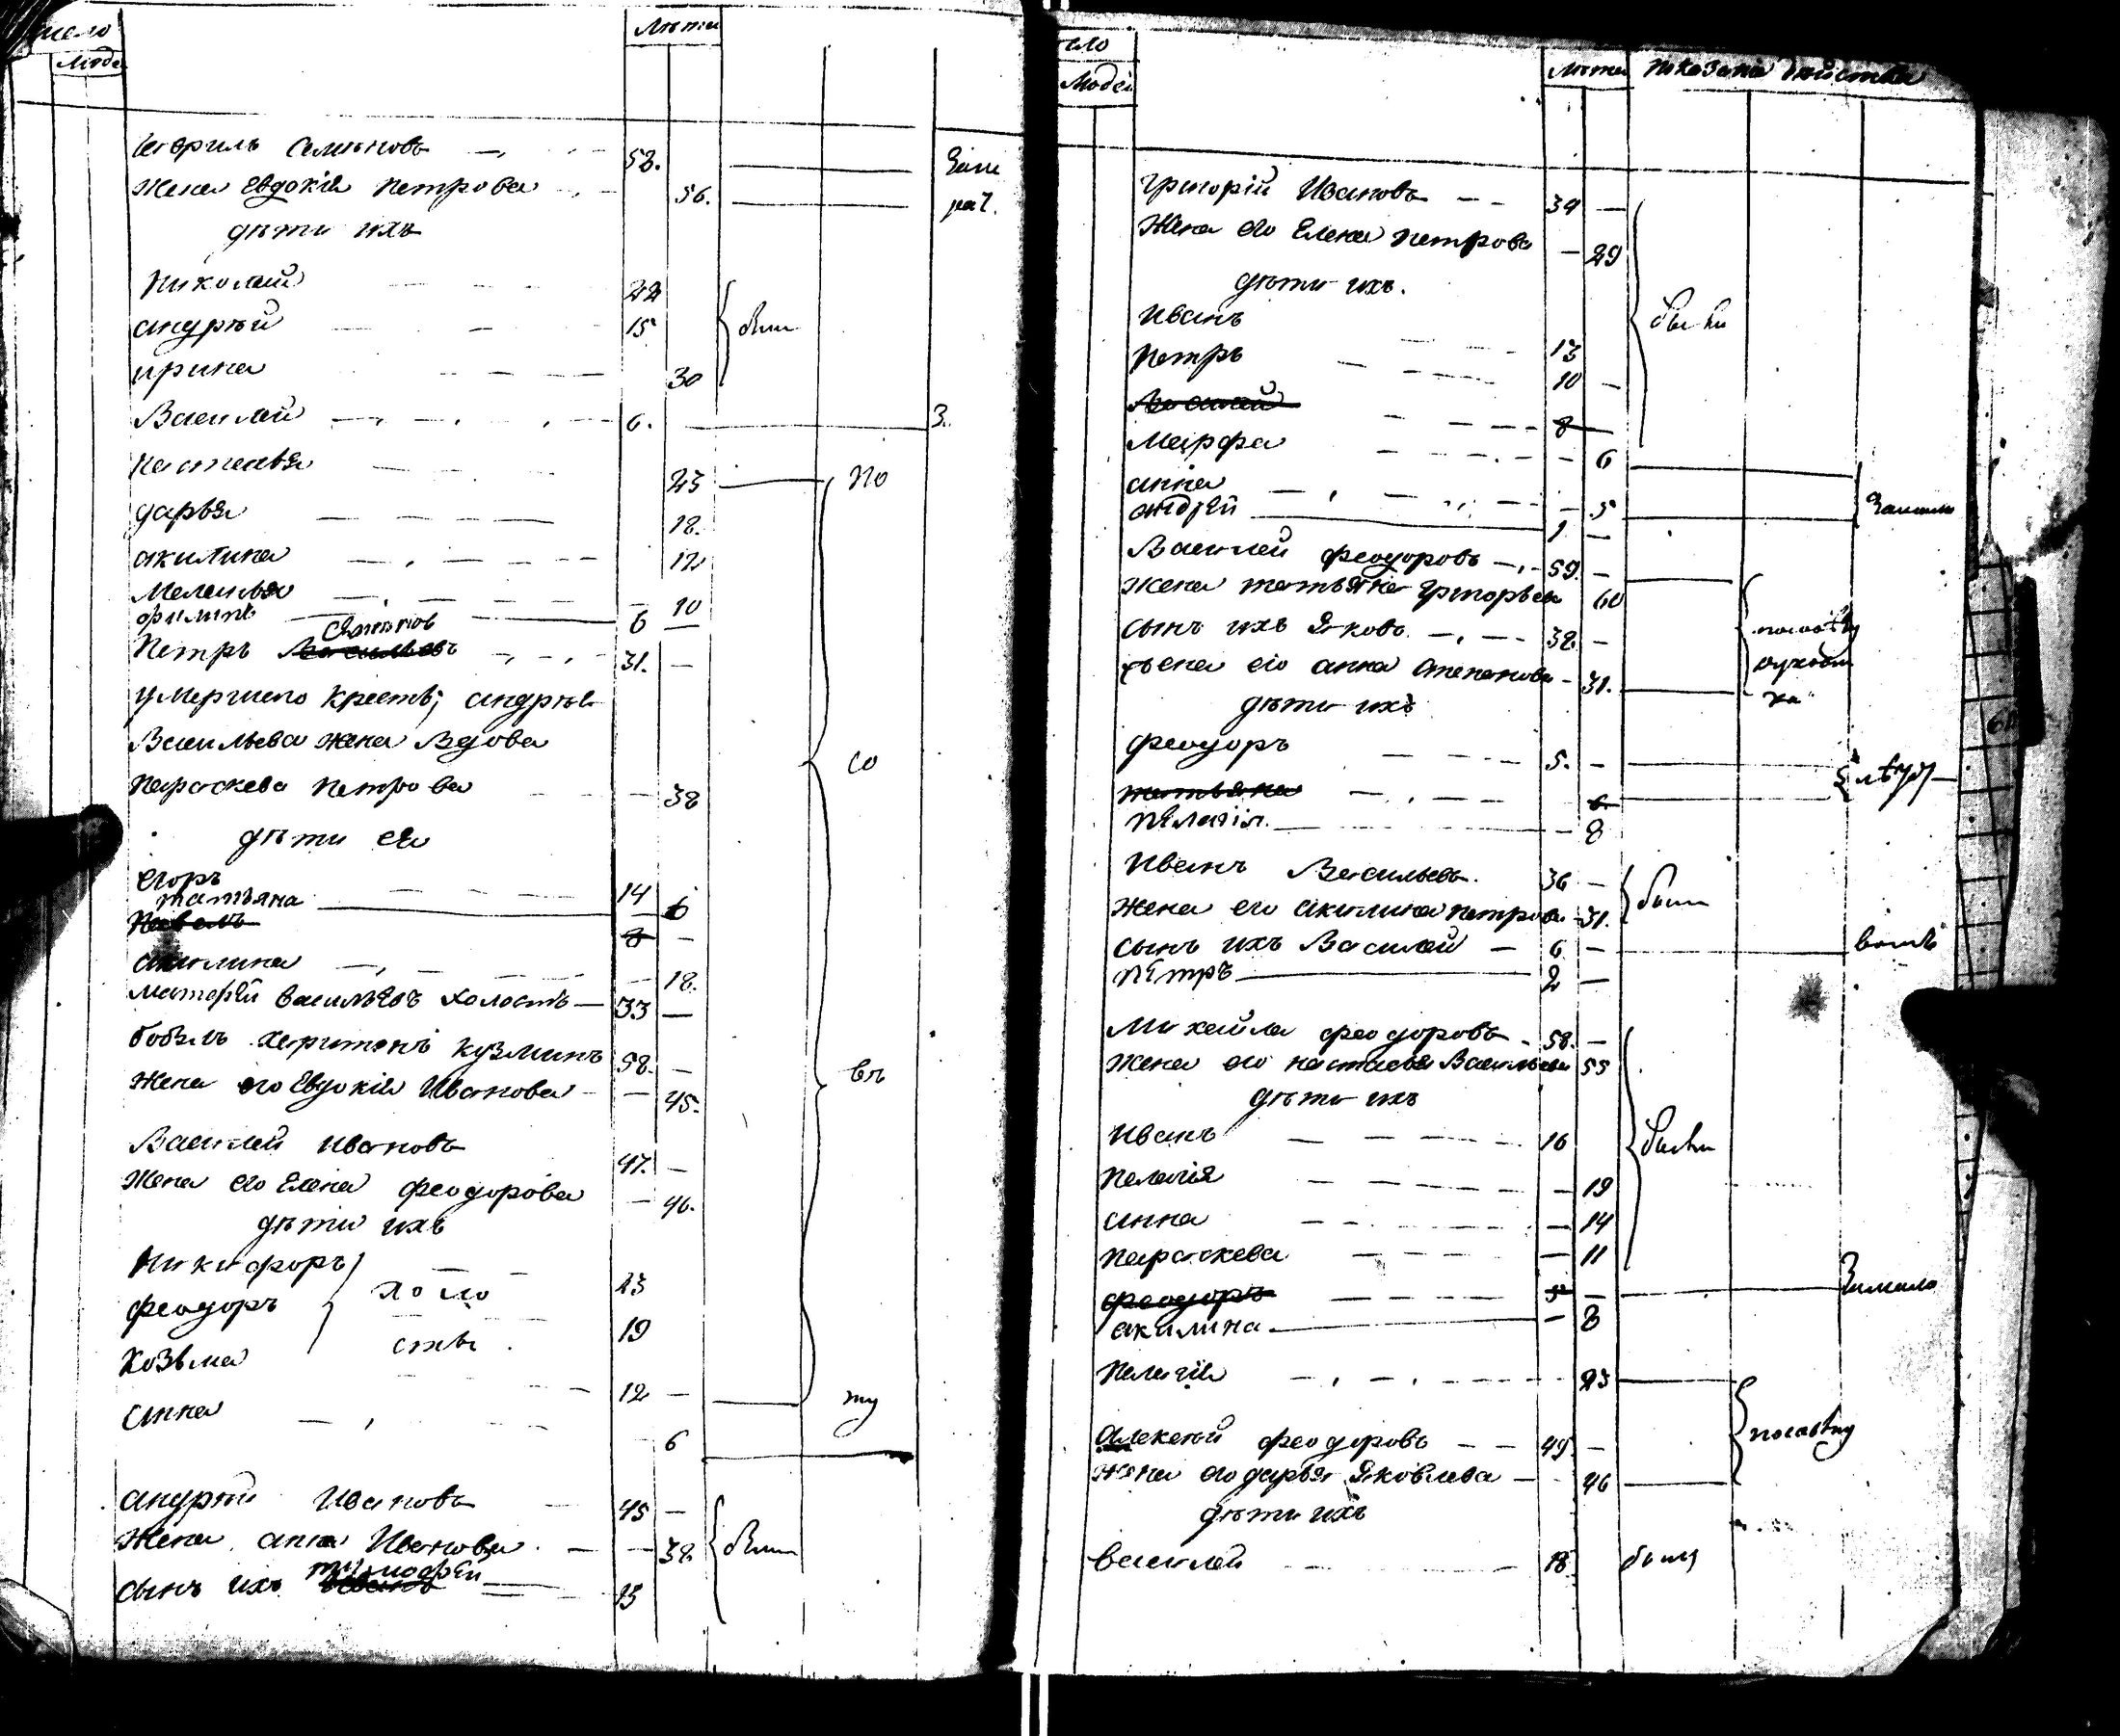 Число
Людей
Лѣта
Семеновъ 58.
Жена Евдокія Петрова 56.
дѣти ихъ
Николай 22
Андрѣй 15
были
Ирина 30
Василей 6. З.
Настасья 23 по
Дарья 18.
Акилина 12
Меланья 10
Филипъ 6
Петръ Васильевъ 31.
умершего крестья; Андрѣя
Васильева жена вдова
со
Параскева Петрова 38
дѣти ея
Егоръ 14
Татьяна 6
Павелъ 8
Акилина 18.
Матфѣй Васильевъ холостъ 33
бобыль Харитонъ Кузминъ 58.
въ
Жена его Евдокія Иванова 45.
Василей Ивановъ 47.
Жена его Елена Феодорова 46.
дѣти ихъ
Никифоръ 23
холо
Феодоръ 19
сты
Козьма 12
Анна 6
ту
Андрѣй Ивановъ 45
Жена Анна Иванова 38
были
Тимофѣй
сынъ ихъ Иванъ 15
Число
Людей
Лѣта
Показаніе дѣйства
Григорій Ивановъ 34
Жена его Елена Петрова 29
дѣти ихъ.
Иванъ 13
были
Петръ 10
Василей 8
Марфа 6
Анна 5
Андрѣй 1
Василей Феодоровъ 59.
Жена Татьяна Григорьева 60
сынъ ихъ Яковъ 38
жена его Анна Степанова 31.
дѣти ихъ
Феодоръ 5.
Татьяна 6
Пѣлагія 8
Иванъ Васильевъ 36
были
Жена его Акилина Петрова 31.
сынъ ихъ Василей 6
Пѣтръ 2
Михайла Феодоровъ 58.
Жена его Настасья Васильева 55
дѣти ихъ
Иванъ 16
были
Пелагія 19
Анна 14
Параскева 11
Феодоръ 5
Акилина 8
Пелагія 23
Алексѣй Феодоровъ 49.
Жена его Дарья Яковлева 46
дѣти ихъ
Василей 18